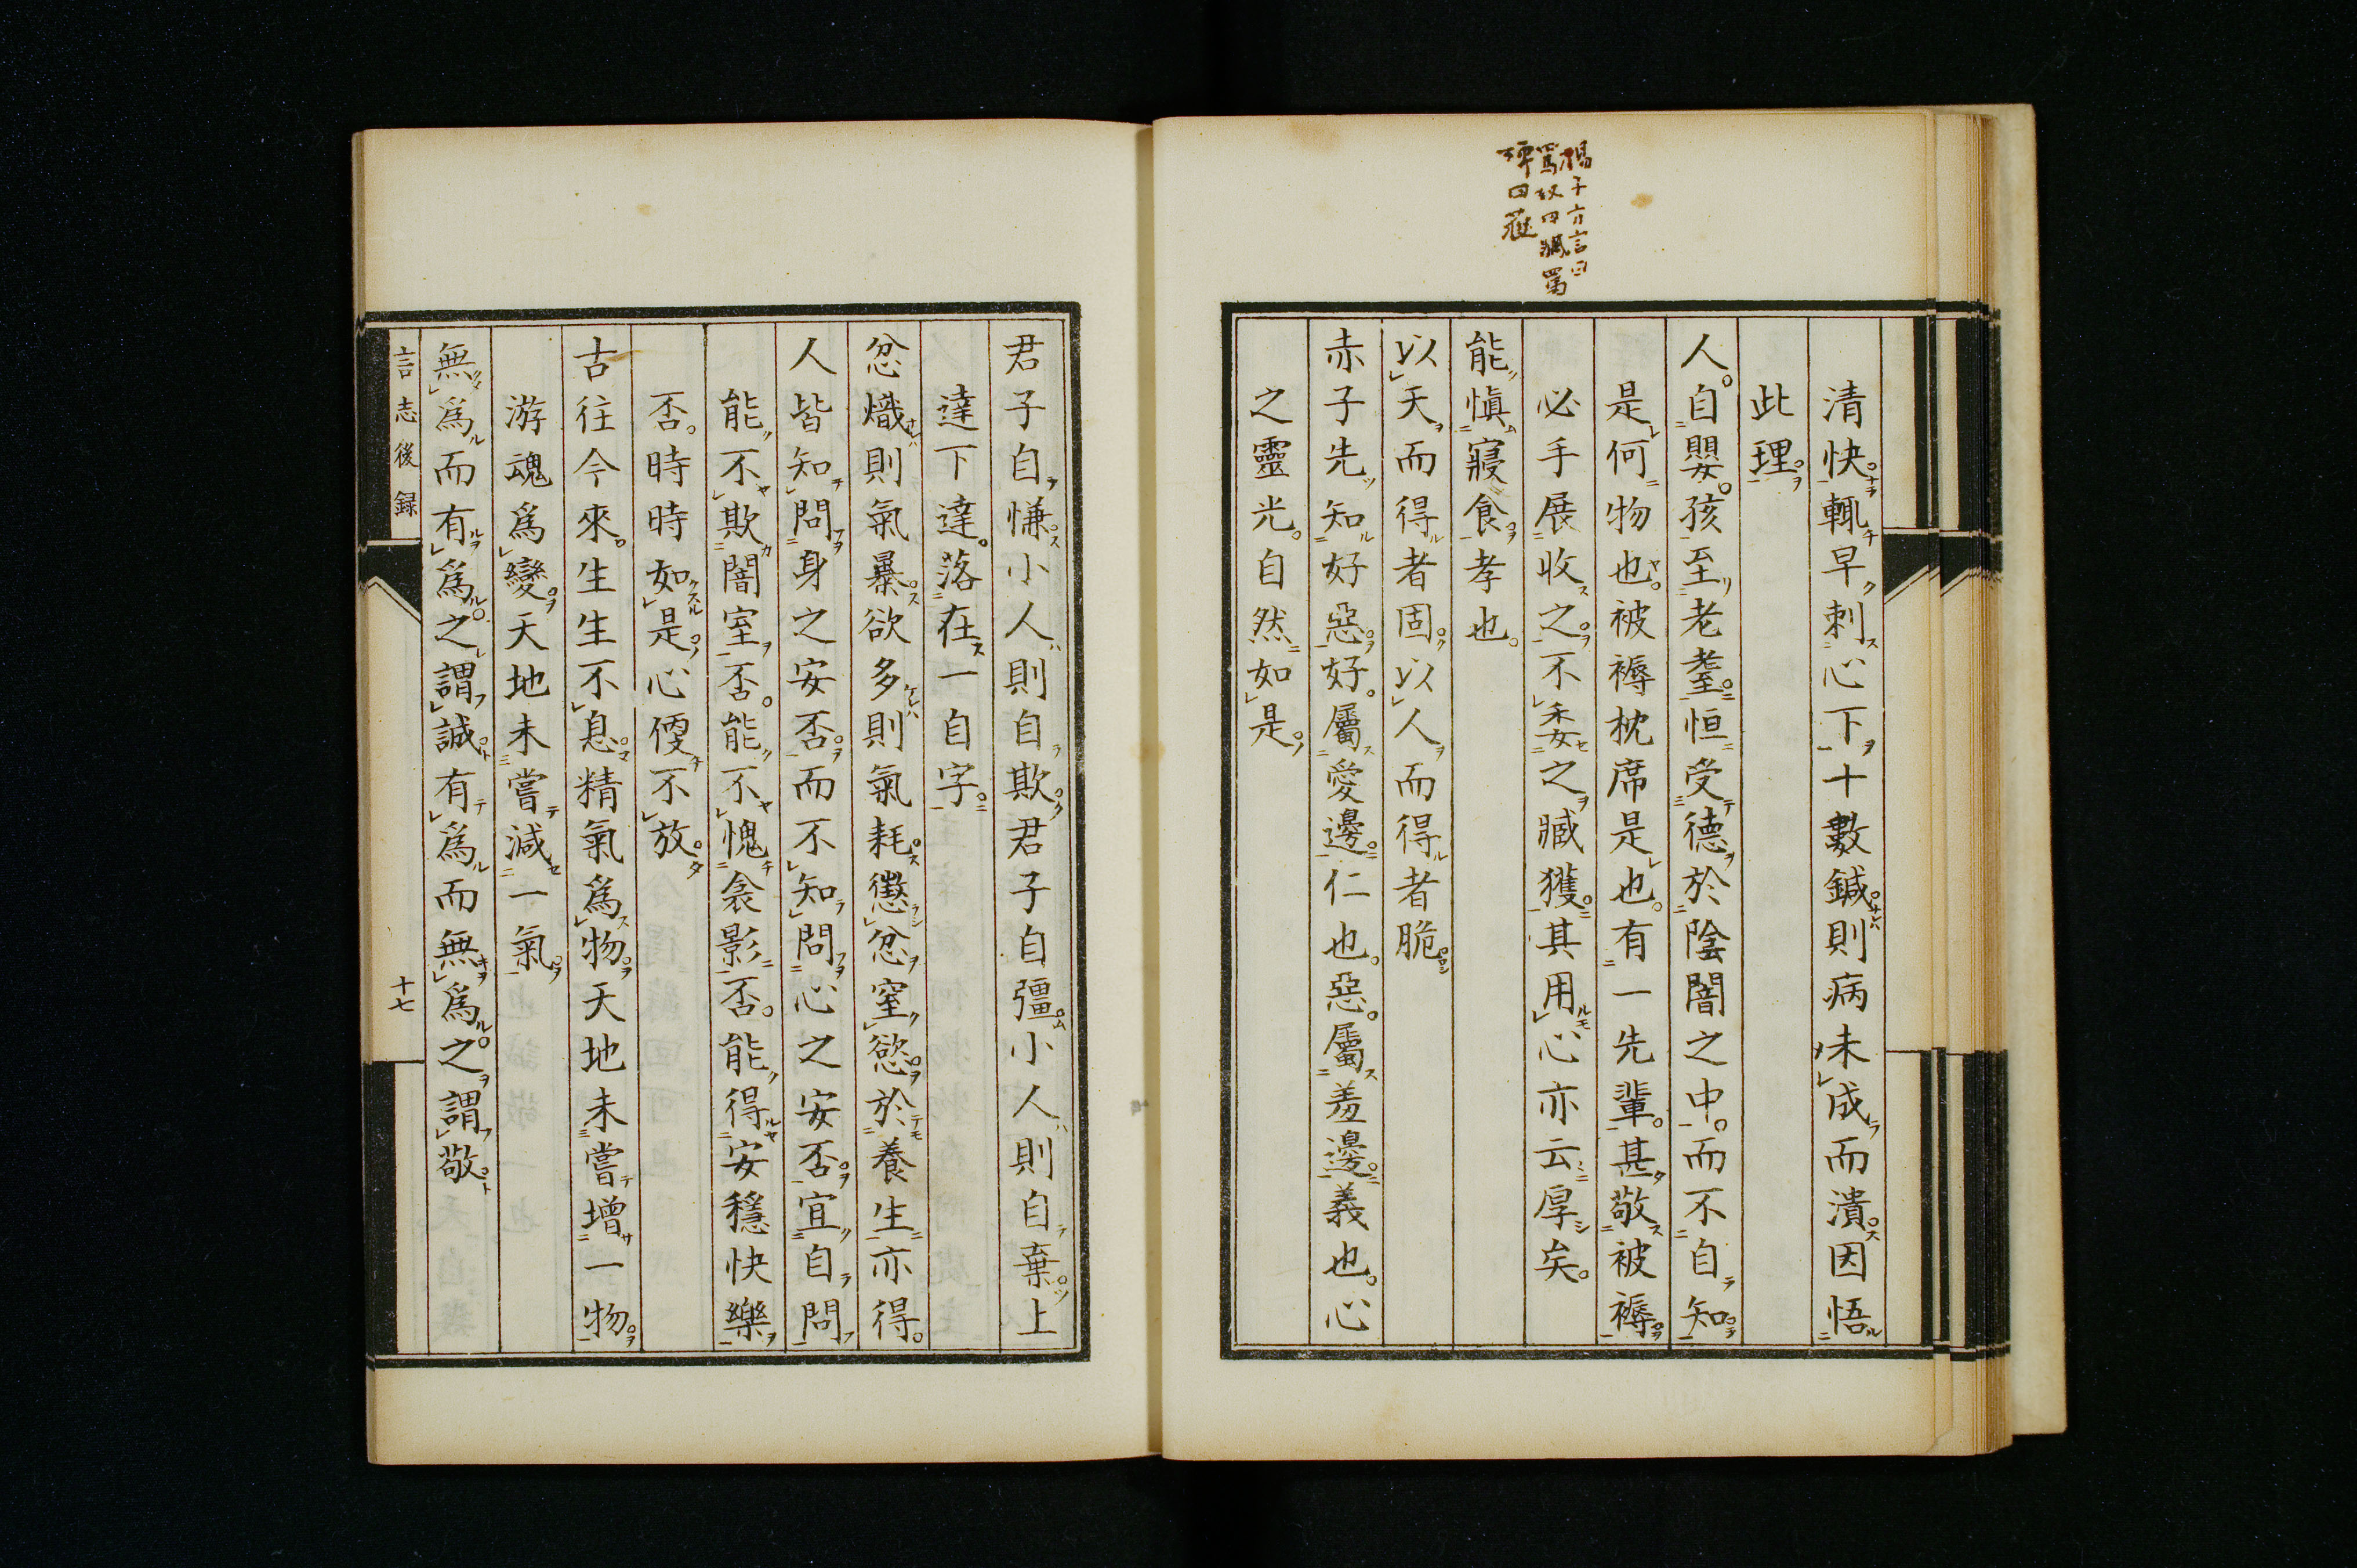 揚子方言曰
罵奴曰臧罵
婢曰獲
清快。輙早刺心下十數鍼。則病未成而潰。因悟
此理。
人。自嬰。孩至老耋。恒受德於陰闇之中。而不自知。
是何物也。被褥枕席是也。有一先輩。甚敬被褥。
必手展收之。不委之臧獲。其用心亦云厚矣。
能愼寢食。孝也。
以天而得者固。以人而得者脆。
赤子先知好惡。好。屬愛邊。仁也。惡。屬羞邊。義也。心
之靈光。自然如是。
君子自慊。小人則自欺。君子自彊。小人則自棄。上
達下達。落在一自字。
忿熾則氣暴。欲多則氣耗。懲忿窒慾。於養生亦得。
人皆知問身之安否。而不知問心之安否。宜自問
能不欺闇室否。能不愧衾影否。能得安穩快樂
否。時時如是。心便不放。
古往今來。生生不息。精氣爲物。天地未嘗增一物。
游魂爲變。天地未嘗減一氣。
無爲而有爲。之謂誠。有爲而無爲。之謂敬。
言志後録
十七